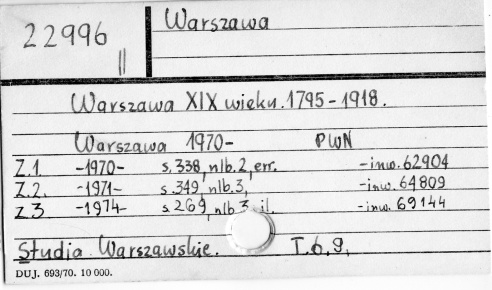 22996 Warszawa
II
Warszawa XIX wieku. 1795-1918.
Warszawa 1970- PWN
Z.1 -1970- s.338, nlb.2, err. -inw.62904
Z.2. -1971- s.349, nlb.3, -inw.64809
Z.3 -1974- s.269, nlb.3, il. -inw.69144
Studia Warszawskie. T.6,9,
DUJ. 693/70. 10 000.